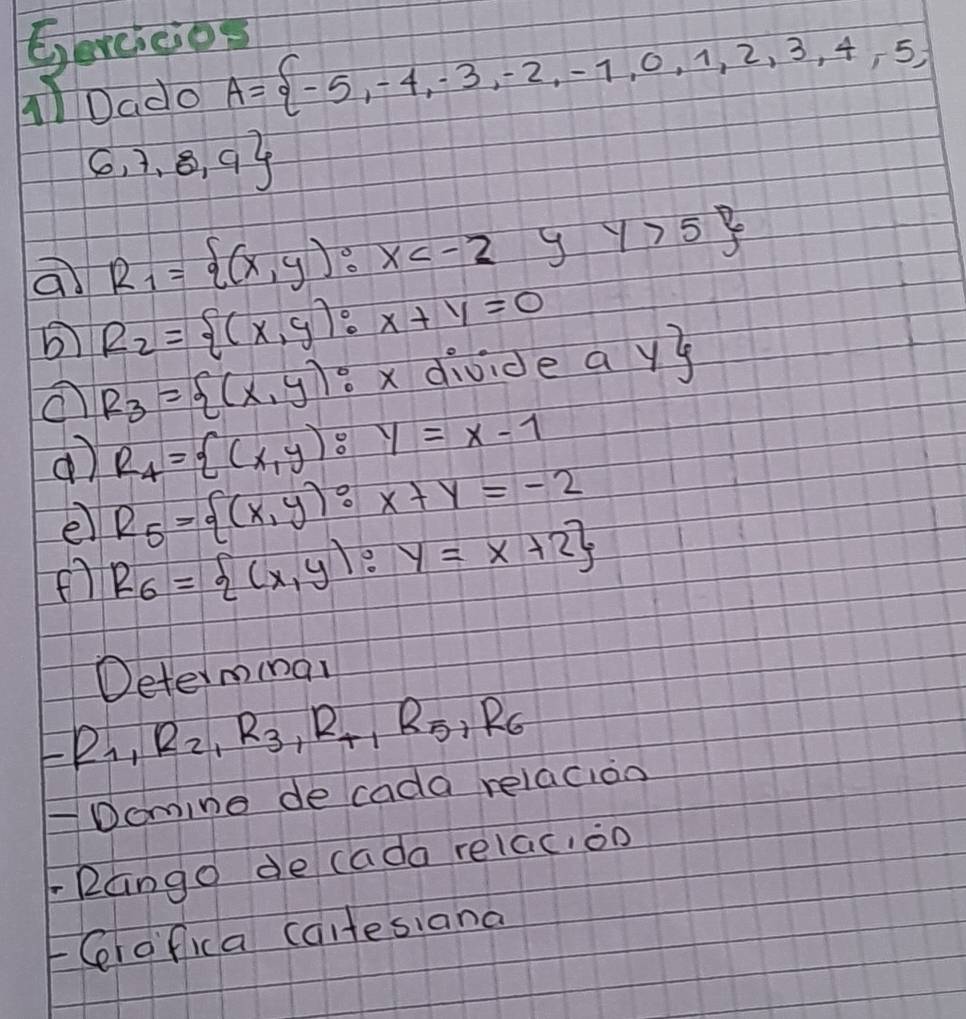 Ejercicios
1) Dado A={-5,-4,-3,-2,-1,0,1,2,3,4,-5,
6,7,8,9}
a) R1={(x,y): x<-2 y y>5}
b) R2={(x,y): x+y=0
c) R3={(x,y): x divide a y}
d) R4={(x,y): y=x-1
e) R5={(x,y): x+y=-2
f) R6={(x,y): y=x+2}
Determinar
-R1, R2, R3, R4, R5, R6
-Domine de cada relación
-Rango de cada relación
-Grafica cartesiana